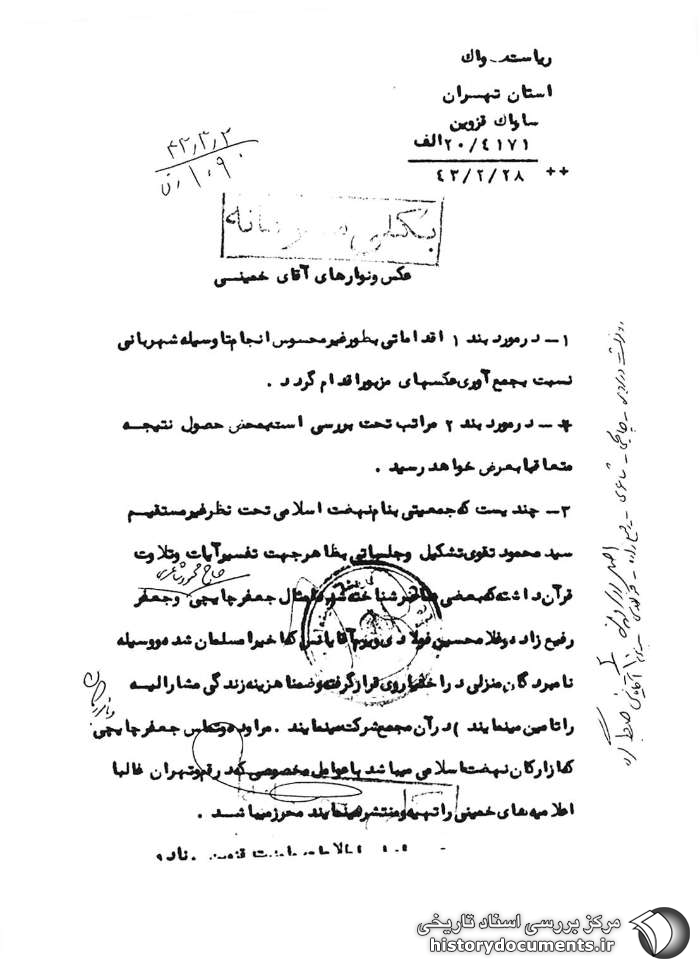 ریاست واک
استان تهران
ساواک قزوین
۲۰/۴۱۷۱الف
++ ۴۳/۲/۲۸
۴۳٫۳٫۲
بکلی محرمانه
عکس ونوارهای آقای خمینی
۱ــ درمورد بند ۱ اقداماتی بطورغیرمحسوس انجام تا وسیله شهربانی
نسبت بجمع آوری عکسهای مزبور اقدام گردد .
* ــ درمورد بند ۲ مراتب تحت بررسی است بمحض حصول نتیجه
متعاقبا بعرض خواهد رسید .
۳ــ چندیست که جمعیتی بنام نهضت اسلامی تحت نظرغیرمستقیم
سید محمود تقوی تشکیل وجلساتی بظاهر جهت تفسیرآیات وتلاوت
قرآن داشته که بعضی شناخته شده امثال جعفر چایچی وجعفر
رفیع زاده وغلامحسین فولادی آقایانس که اخیرا مسلمان شده ووسیله
نامبردگان منزلی دراختیاروی قرارگرفته وضمنا هزینه زندگی مشارالیه
را تامین مینمایند ) درآن مجمع شرکت مینمایند . مراوده وتماس جعفر چایچی
که ازارکان نهضت اسلامی میباشد با عوامل مخصوصی که درقم وتهران غالبا
اعلامیه های خمینی را تهیه ومنتشرمینمایند محرزمیباشد .
مرکز بررسی اسناد تاریخی
historydocuments.ir